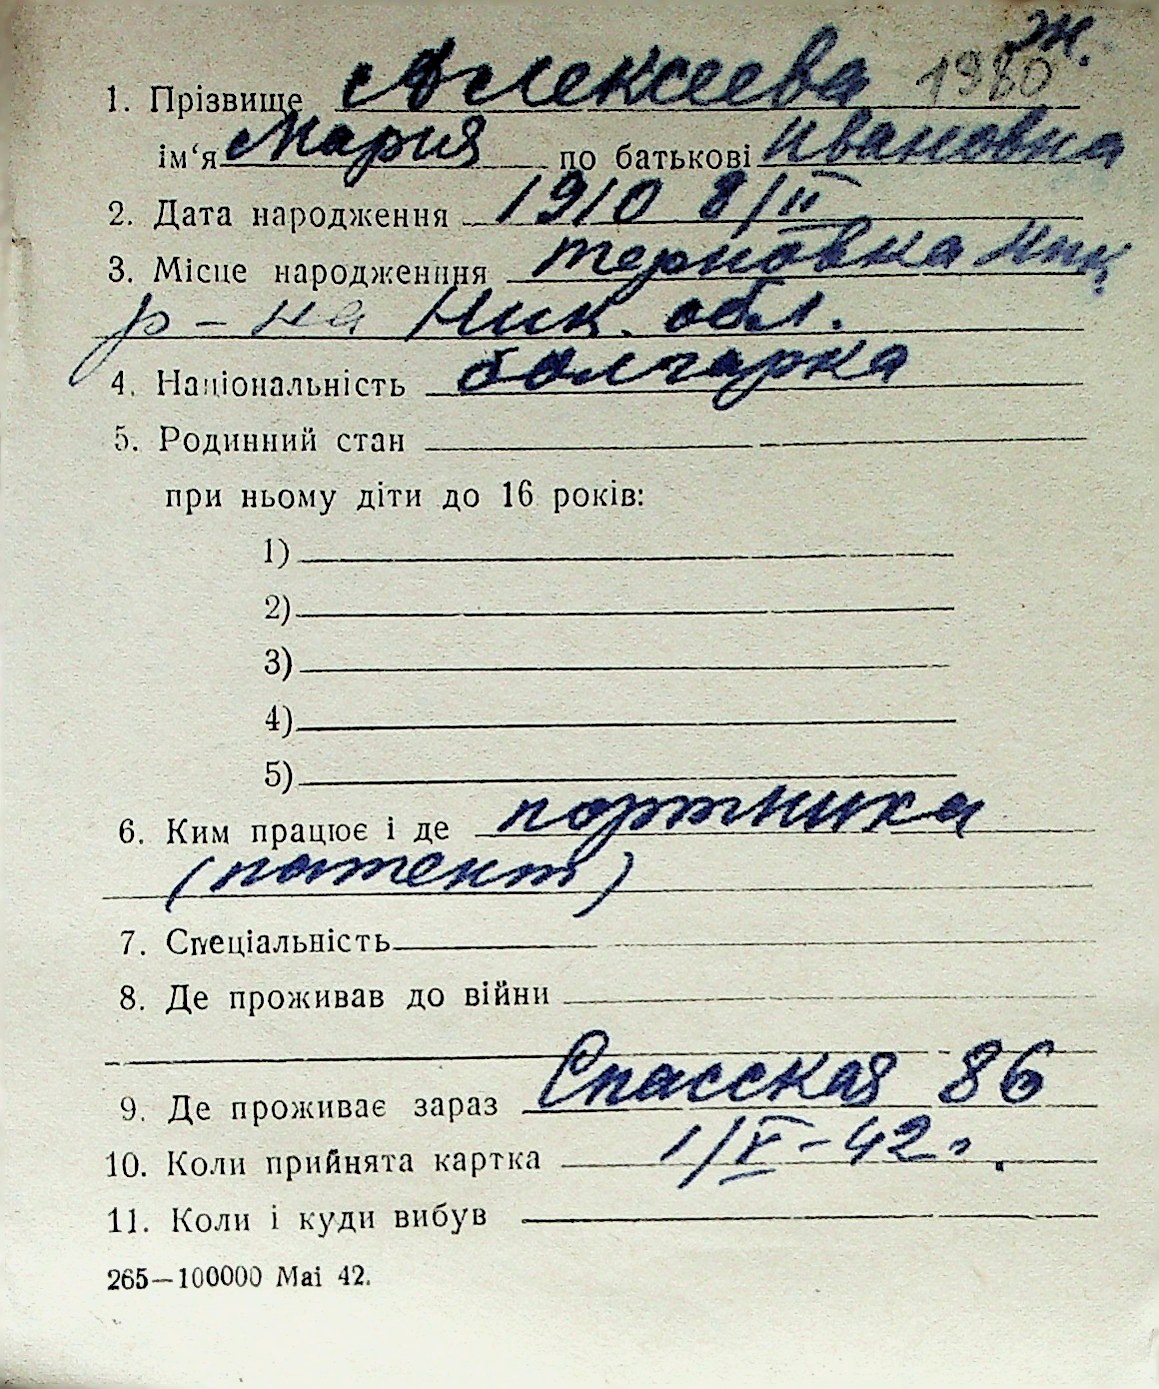 ж.
1. Прізвище Алексеева 1980
ім‘я Мария по батькові Ивановна
2. Дата народження 1910 8/II
3. Місце народженння Терновка
р-на Ник. обл.
4. Національність болгарка
5. Родинний стан
при ньому діти до 16 років:
1)
2)
3)
4)
5)
6. Ким працює і де портниха
(патент)
7. Спеціальність
8. Де проживав до війни
9. Де проживає зараз Спасская 86
10. Коли прийнята картка 1/V-42г.
11. Коли і куди вибув
265—100000 Mai 42.